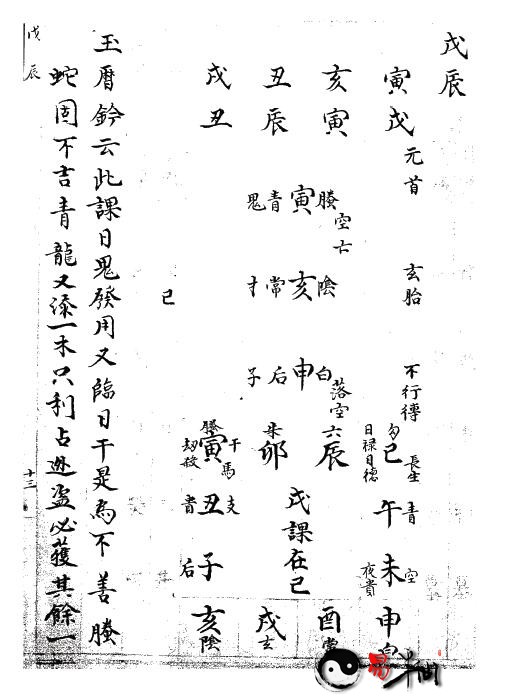 戊辰
寅戊
亥寅
丑辰
戌丑
元首
玄胎
不行傳
鬼青寅螣空亡
才常亥陰
子后申白落空
日祿日德
勾巳長生
午青
夜貴
未空
申白
六辰
戊課在己
酉常
朱卯
戌玄
劫殺
螣寅干馬
貴丑支
后子
亥陰
己
玉曆鈐云此課日鬼發用又臨日干是為不善螣
蛇固不吉青龍又添一木只利占逃盜必獲其餘一
戊辰
十三